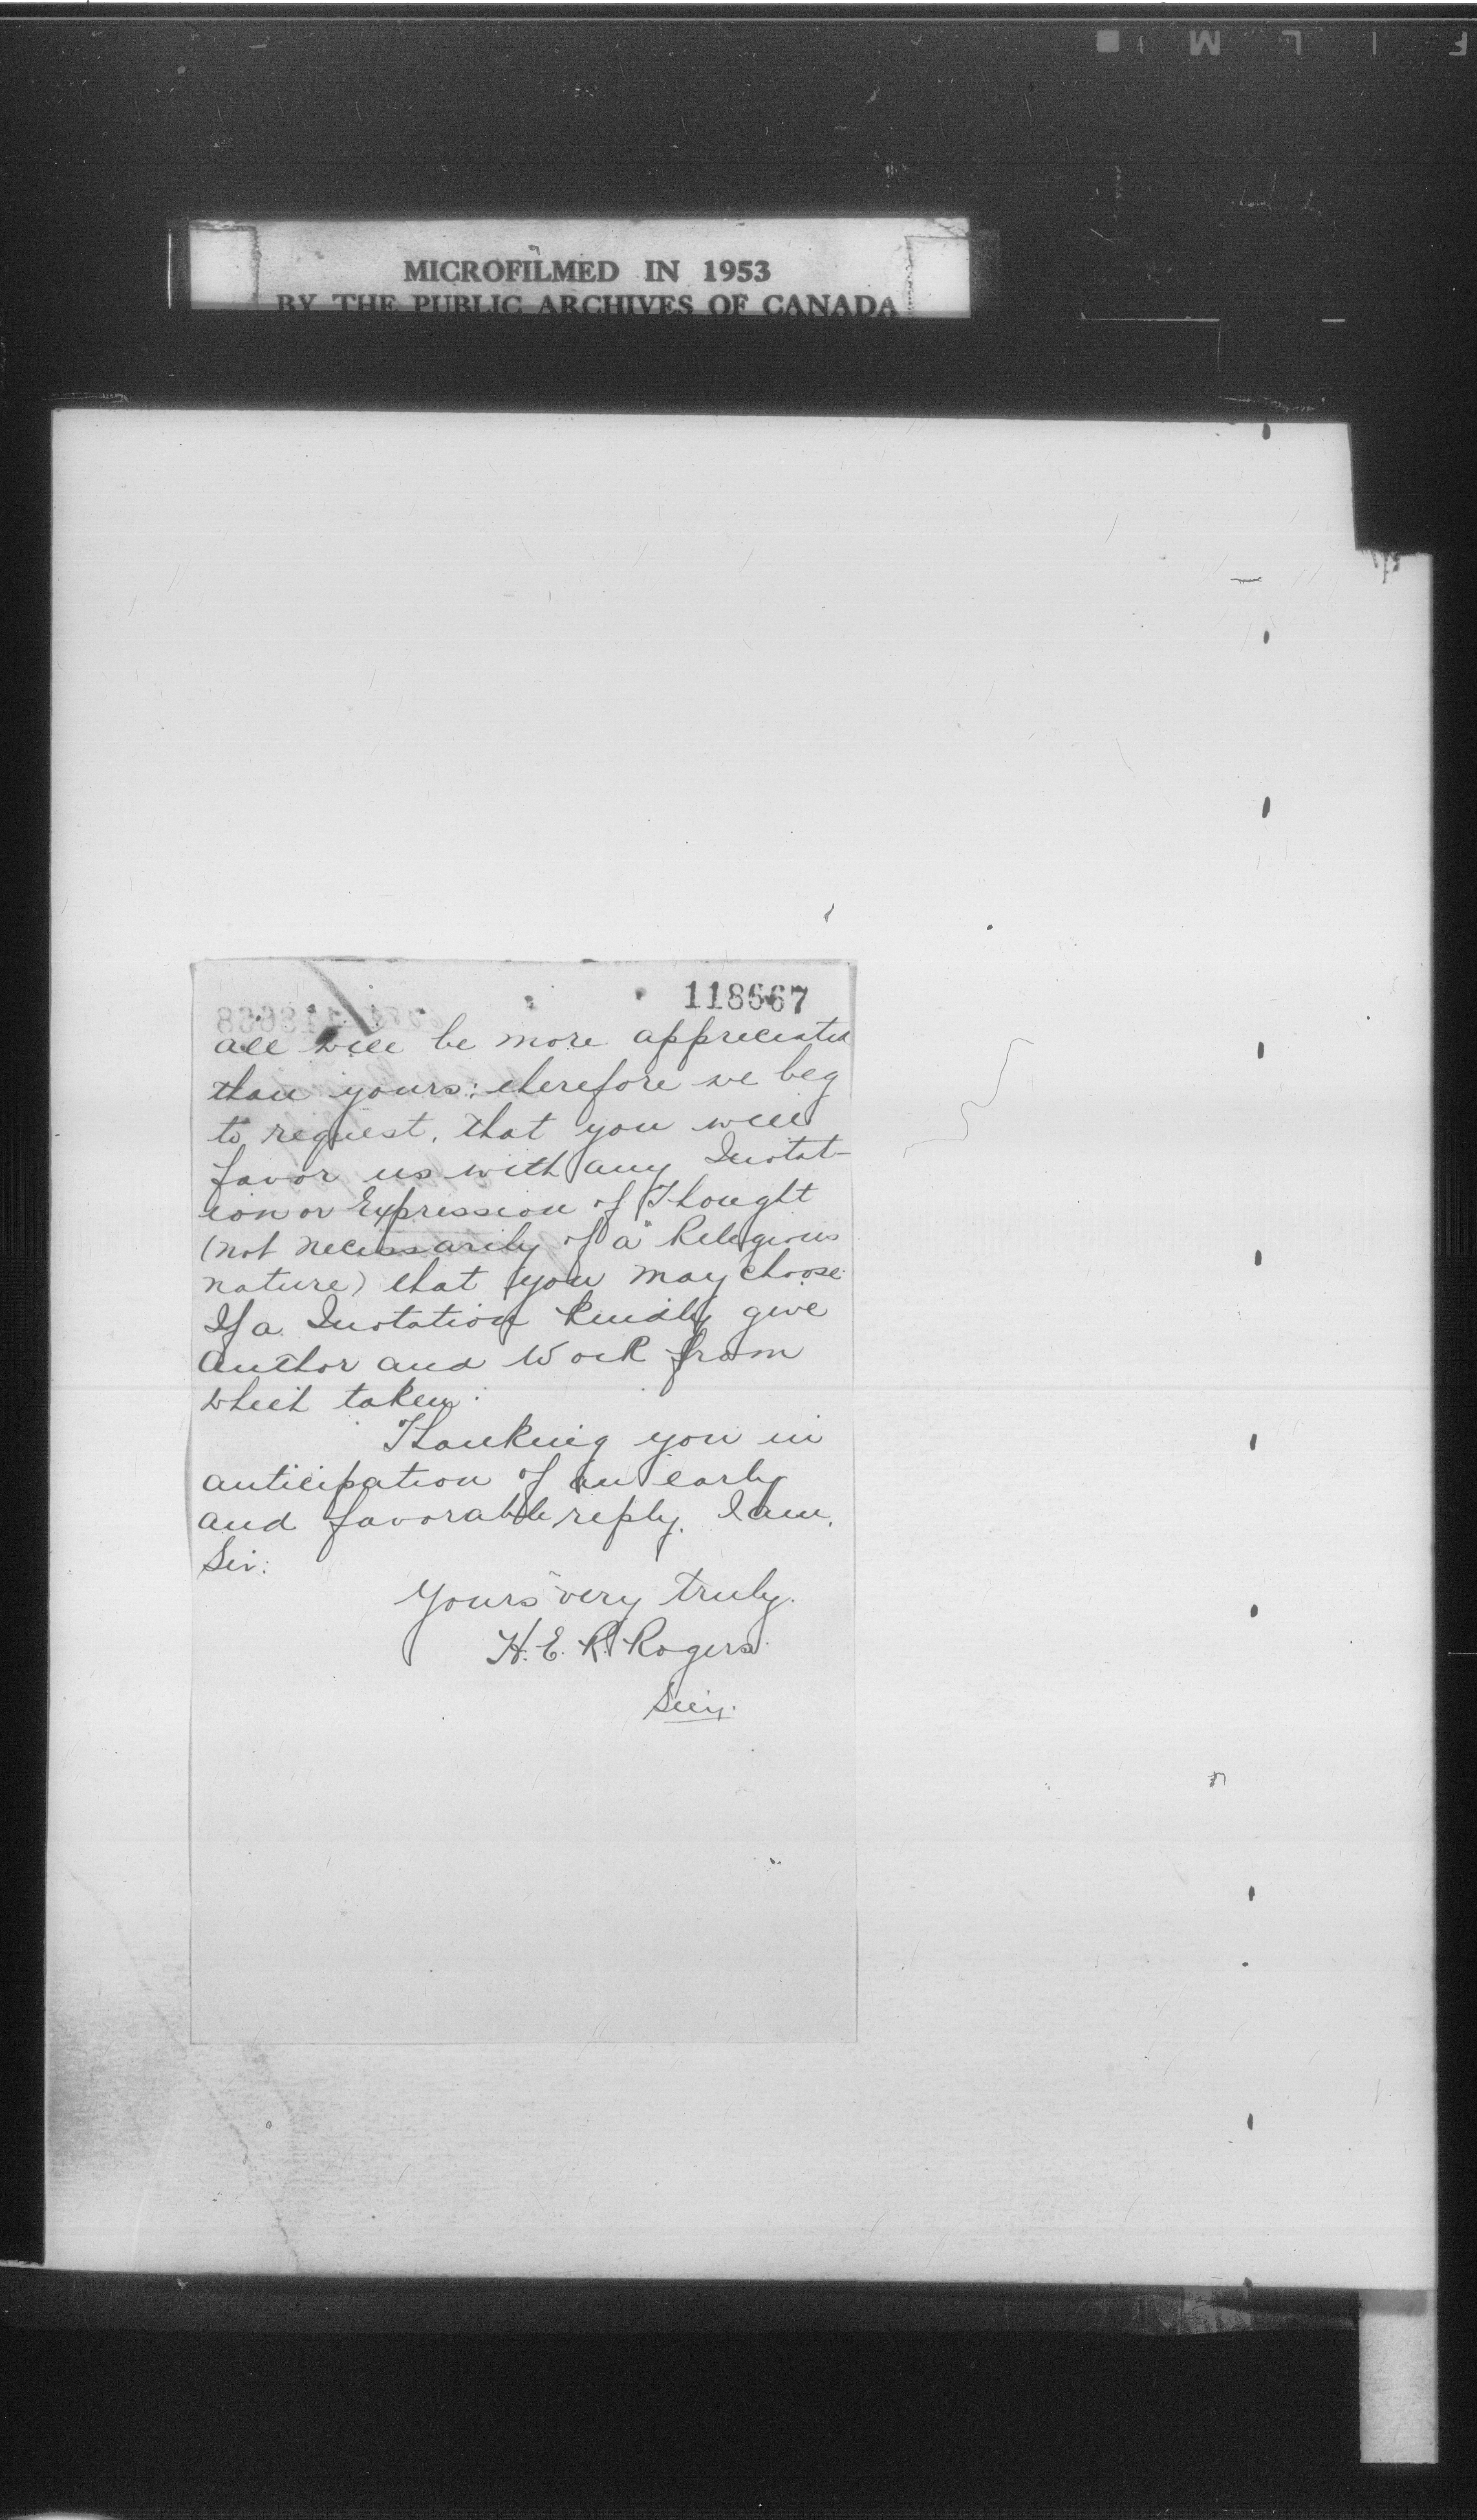 MICROFILMED IN 1953
BY THE PUBLIC ARCHIVES OF CANADA
118667
all will be more appreciated
than yours; therefore we beg
to request, that you will
favor us with any Quotat-
ion or Expression of Thought
(not necessarily of a "Religious
nature) that you may choose.
If a Quotation kindly give
Author and Work from
which taken.
Thanking you in
anticipation of an early
and favorable reply, I am,
Sir:
Yours very truly.
H. E. R. Rogers.
Secy.